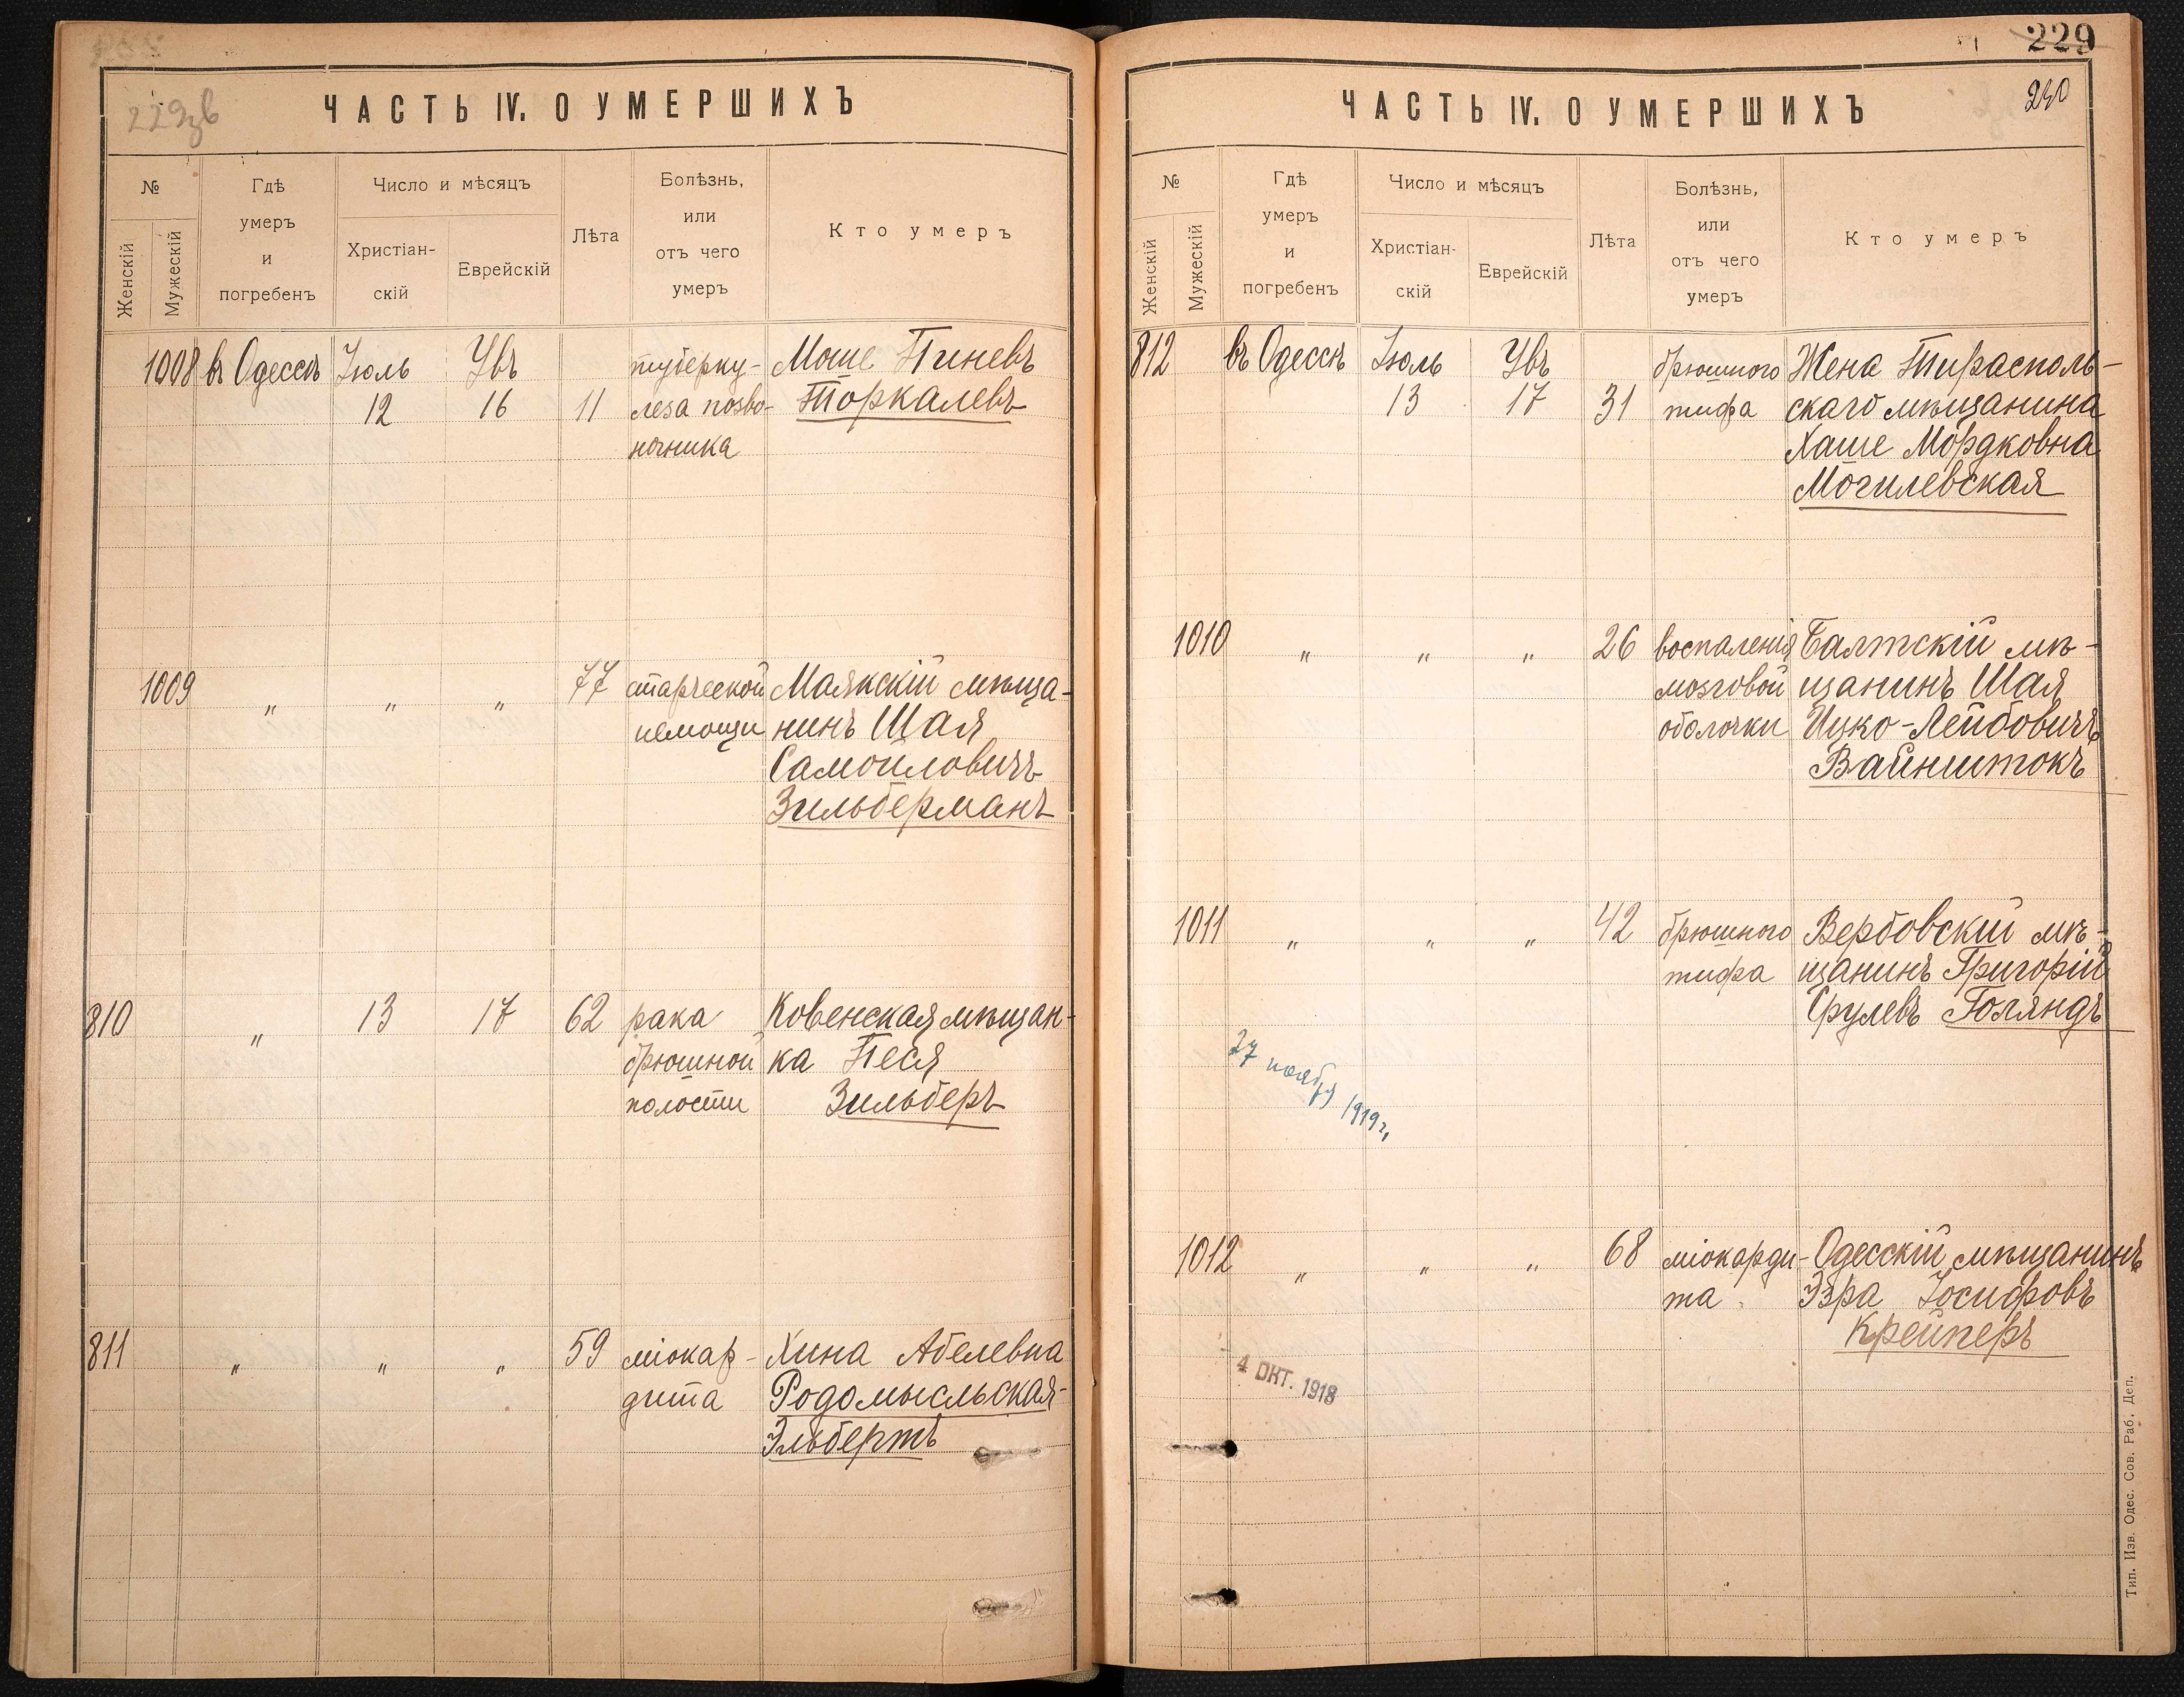 229зв
ЧАСТЬ IV. О УМЕРШИХЪ
№
Женскій
Мужескій
Гдѣ
умеръ
и
погребенъ
Число и мѣсяцъ
Христіан-
скій
Еврейскій
Лѣта
Болѣзнь,
или
отъ чего
умеръ
Кто умеръ
1008 въ Одессѣ Іюль Увъ туберку- Моше Пиневъ
12 16 11 леза позво- Торкалевъ
ночника
1009 " " " 77 старческой Маякскій мѣща-
немощи нинъ Шая
Самойловичъ
Зильберманъ
810 " 13 17 62 рака Ковенская мѣщан-
брюшной ка Песя
полости Зильберъ
811 " " " 59 міокар- Хина Абелевна
дита Родомысльская-
Эльбертъ
229
240
ЧАСТЬ IV. О УМЕРШИХЪ
№
Женскій
Мужескій
Гдѣ
умеръ
и
погребенъ
Число и мѣсяцъ
Христіан-
скій
Еврейскій
Лѣта
Болѣзнь,
или
отъ чего
умеръ
Кто умеръ
812 въ Одессѣ Іюль Увъ брюшного Жена Тирасполь-
13 17 31 тифа скаго мѣщанина
Хаше Мордковна
Могилевская
1010 " " " 26 воспаленія Балтскій мѣ-
мозговой щанинъ Шая
оболочки Ицко-Лейбовичъ
Вайнштокъ
1011 " " " 42 брюшного Вербовскій мѣ-
тифа щанинъ Григорій
Срулевъ Голяндъ
27 ноября 1919 г.
1012 " " " 68 міокарди- Одесскій мѣщанинъ
та Эзра Іосифовъ
Крейперъ
4 ОКТ. 1918
Тип. Изв. Одес. Сов. Раб. Деп.